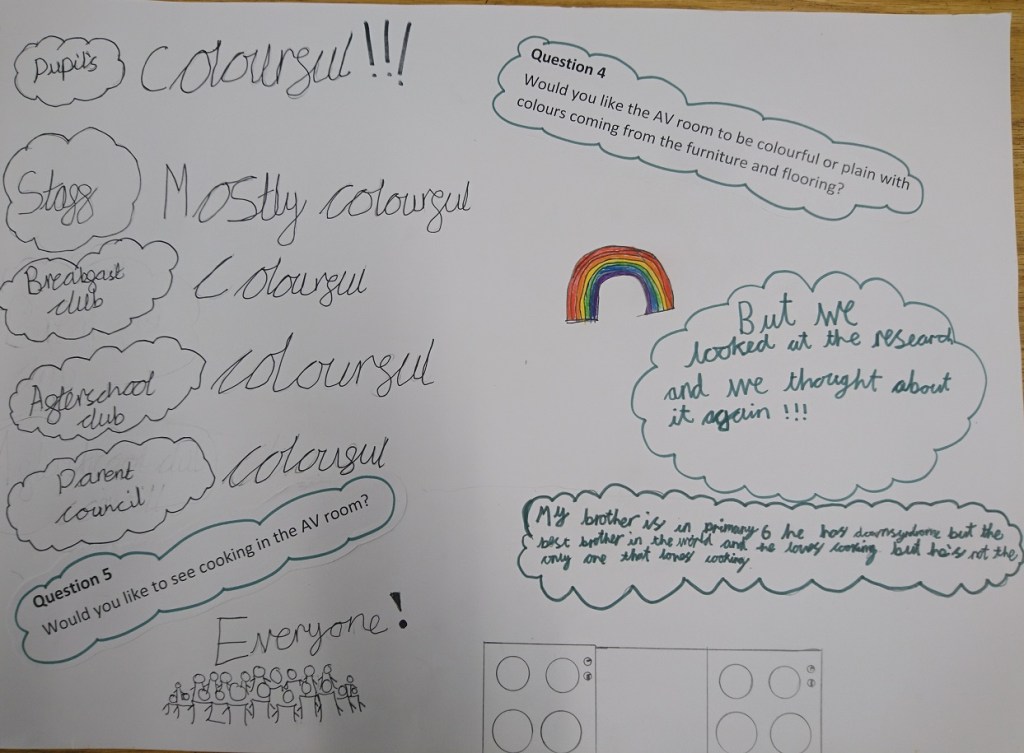 Pupil's
Colourful!!!
Staff
Mostly colourful
Breakfast
club
Colourful
Afterschool
club
colourful
Parent
council
colouful
Question 4
Would you like the AV room to be colourful or plain with
colours coming from the furniture and flooring?
But we
looked at the research
and we thought about
it again !!!
Question 5
Would you like to see cooking in the AV room?
Everyone!
My brother is in primary 6 he has downsyndrome but the
best brother in the world and he loves cooking but he's not the
only one that loves cooking